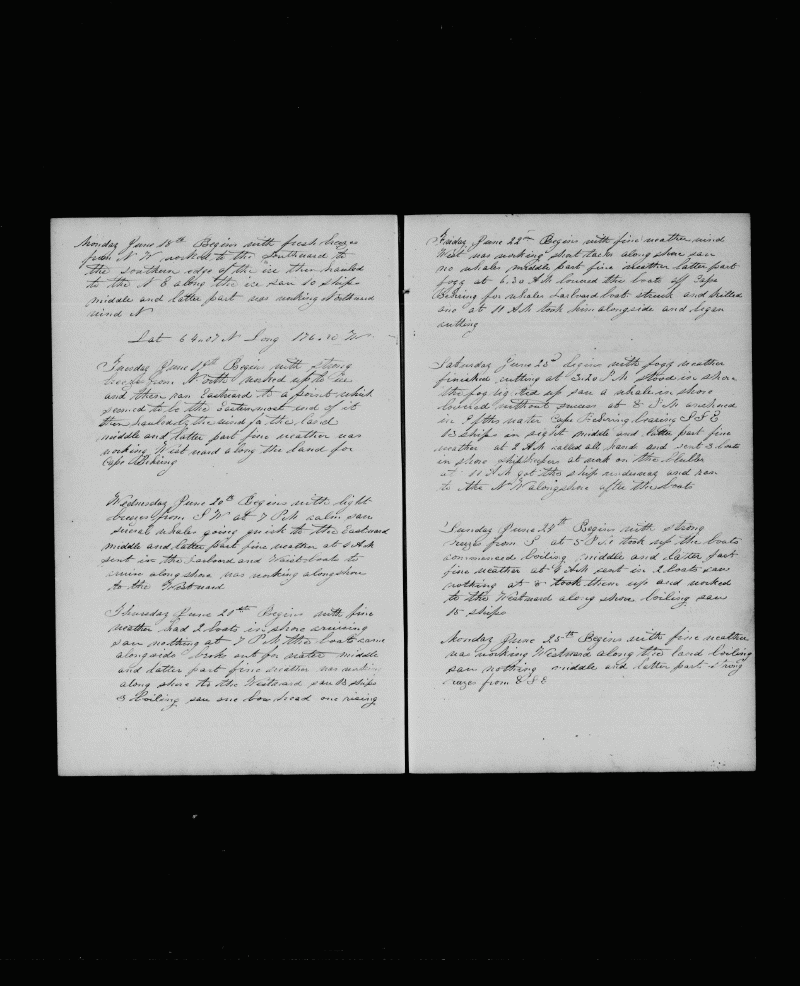 Monday June 18th Begins with fresh breezes
from N W worked to the Southward to
the southern edge of the ice then hauled
to the N E along the ice saw 10 ships
middle and latter part was working Northward
wind N
Lat 64.07 N Long 176. W
Tuesday June 19th Begins with strong
breezes from North worked up to the ice
and then ran Eastward to a point which
seemed to be the Eastern most end of it
then hauled the wind for the land
middle and latter part fine weather was
working Westward along the land for
Cape Behring
Wednesday June 20th Begins with light
breezes from S W at 7 P M calm saw
several whales going quick to the Eastward
middle and latter part fine weather at A M
sent in the Larboard and Waist boats to
cruise along shore was working along shore
to the Westward
Thursday June 21th Begins with fine
weather had 2 boats in shore cruising
saw nothing at 7 P M the boats came
alongside broke out for water middle
and latter part fine weather was working
along shore to the Westward saw 13 ships
3 boiling saw one bowhead one rising
Friday June 22th Begins with fine weather wind
West was working short tacks along shore saw
no whales middle part fine weather latter part
fogg at 6.30 A M lowered the boats off Cape
Behring for whales Larboard boat struck and killed
one at 11 A M took him alongside and began
cutting
Saturday June 23d begins with fogg weather
finished cutting at 3.20 P M stood in shore
the fog lighted up saw a whale in shore
lowered without success at 8 P M anchored
in fthms water Cape Behring bearing S S E
13 ships in sight middle and latter part fine
weather at 2 A M called all hands and sent 3 boats
in shore shipkeepers at work on the blubber
at 11 A M got the ship underway and ran
to the N W along shore after the boats
Sunday June 24th Begins with strong
breezes from S at 5 P M took up the boats
commenced boiling middle and latter part
fine weather at A M sent in 2 boats saw
nothing at 8 took them up and worked
to the Westward along shore boiling saw
15 ships
Monday June 25th Begins with fine weather
was working Westward along the land boiling
saw nothing middle and latter part strong
breezes from S E